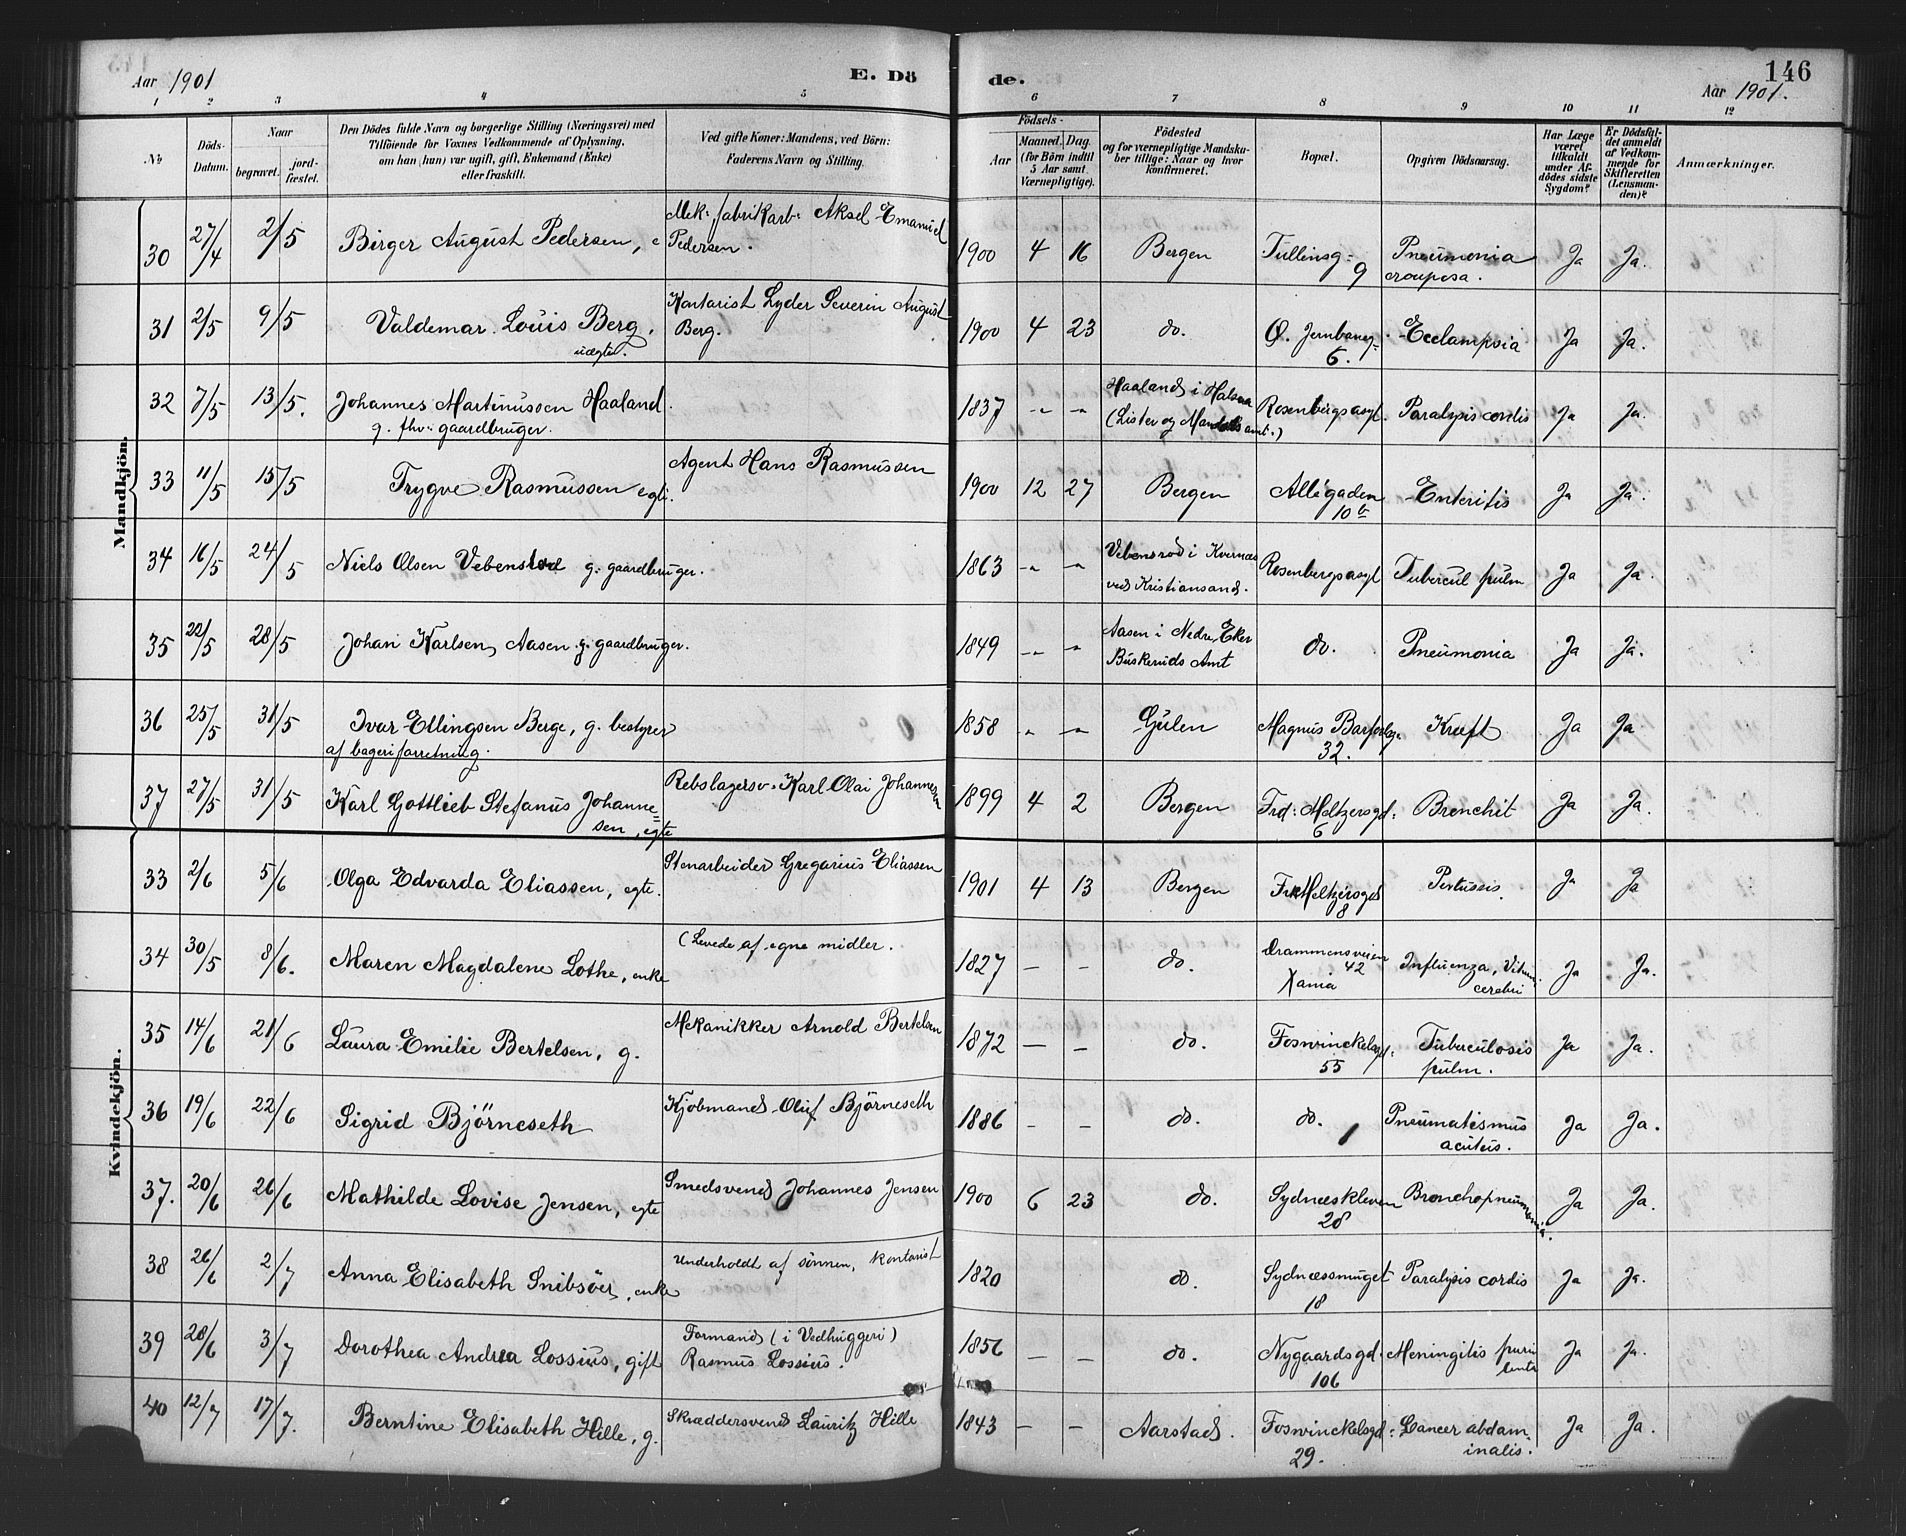 Aar 1901
E. Dö
de.
146
Aar 1901.
1 2 3 4 5 6 7 8 9 10 11 12
No
Döds-Datum.
Naar
begravet.
jord-fæstet.
Den Dödes fulde Navn og borgerlige Stilling (Næringsvei) med
Tilföiende for Voxnes Vedkommende af Oplysning,
om han (hun) var ugift, gift, Enkemand (Enke)
eller fraskilt.
Ved gifte Koner: Mandens, ved Börn:
Faderens Navn og Stilling.
Födsels-
Aar
Maaned.
Dag.
(for Börn indtil
5 Aar samt
Værnepligtige).
Födested
og for værnepligtige Mandska-
ber tillige: Naar og hvor
konfirmeret.
Bopæl.
Opgiven Dödsaarsag.
Har Læge
været
tilkaldt
under Af-
dödes sidste
Sygdom?
Er Dödsfal-
det anmeldt
af Vedkom-
mende for
Skifteretten
(Lensman-
den)?
Anmærkninger.
Mandkjön.
30 27/4 2/5 Birger August Pedersen, e Mek: fabrikarb: Aksel Emanuel Pedersen. 1900 4 16 Bergen Tullinsg: 9 Pneumonia crouposa. Ja Ja.
31 2/5 9/5 Valdemar Louis Berg, uægte. Kontorist Lyder Severin August Berg. 1900 4 23 do. O. Jernbaneg: 6. Ecclampsia Ja Ja.
32 7/5 13/5. Johannes Martinussen Haaland g. fhv: gaardbruger. 1837 -"- -"- Haaland i Halsaa (Lister og Mandals amt.) Rosenbergs asyl. Paralysis cordis Ja Ja.
33 11/5 15/5 Trygve Rasmussen egte. Agent Hans Rasmussen 1900 12 27 Bergen Allégaden 10b Enteritis Ja Ja.
34 16/5 24/5 Niels Olsen g. gaardbruger. 1863 -"- -"- i Kvernes ved Kristiansand. Rosenbergs asyl Tubercul pulm Ja Ja.
35 22/5 28/5 Johan Karlsen Aasen g. gaardbruger. 1849 -"- " Aasen i Nedre Eker Buskeruds Amt do. Pneumonia Ja Ja.
36 25/5 31/5 Ivar Ellingsen Berge, g. bestyrer af bageriforretning. 1858 " -"- Gulen Magnus Barfodsg. 32. Kræft Ja Ja
37 27/5 31/5 Karl Gottlieb Stefanus Johanne= sen, egte Rebslagersv. Karl Olai Johannesen 1899 4 2 Bergen Frd: Meltzersgd: 6 Bronchit Ja Ja.
Kvindekjön.
33 2/6 5/6 Olga Edvarda Eliassen, egte. Stenarbeider Gregarius Eliassen 1901 4 13 Bergen Fr. Meltzersgd 8 Pertussis. Ja Ja
34 30/5 8/6. Maren Magdalene Lothe, enke (Levede af egne midler. 1827 — — do. Drammensveien 42 Xania Influenza, cerebri Ja Ja.
35 14/6 21/6 Laura Emilie Bertelsen, g. Mekanikker Arnold Bertelsen 1872 — — do. Foswinckelsgd: 55 Tuberculosis pulm. Ja Ja.
36 19/6 22/6 Sigrid Björneseth Kjöbmand Oluf Björneseth 1886 — — do. do. 1 Pneumatismus acutus. Ja Ja.
37. 20/6 26/6 Mathilde Lovise Jensen, egte Smedsvend Johannes Jensen 1900 6 23 do. Sydneskleven 28 Bronchopneumonia. Ja Ja.
38 26/6 2/7 Anna Elisabeth Snibsöer, enke Underholdt af sönnen, kontorist 1820 do. Sydnessmuget 18 Paralysis cordis Ja Ja.
39 28/6 3/7 Dorothea Andrea Lossius, gift Formand (i Vedhuggeri) Rasmus Lossius. 1856 — — do. Nygaardsgd. 106 Meningitis purulenta Ja Ja.
40 12/7 17/7. Berntine Elisabeth Hille, g. Skræddersvend Lauritz Hille 1843 — — Aarstad. Foswinckelsgd: 29. Cancer abdominalis. Ja Ja.